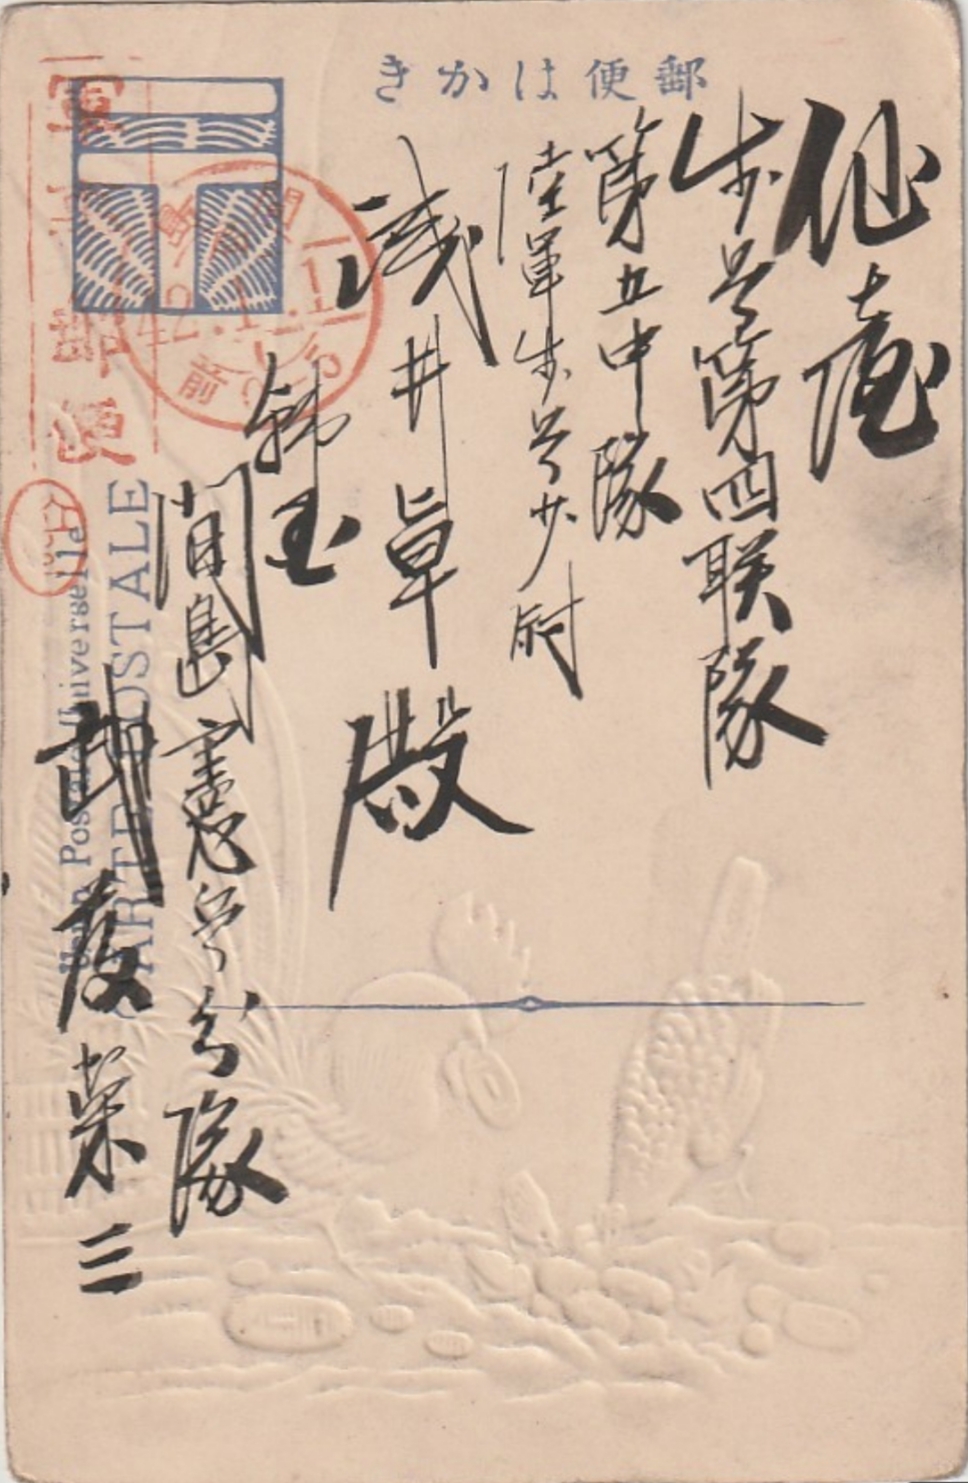 郵便はかき
仙臺
歩兵第四联隊
第五中隊
陸軍歩兵少尉
浅井卓殿
韓国
間島憲兵分隊
栄三
軍事郵便
間島
42.1.1
前
Union Postale Universelle
CARTE POSTALE